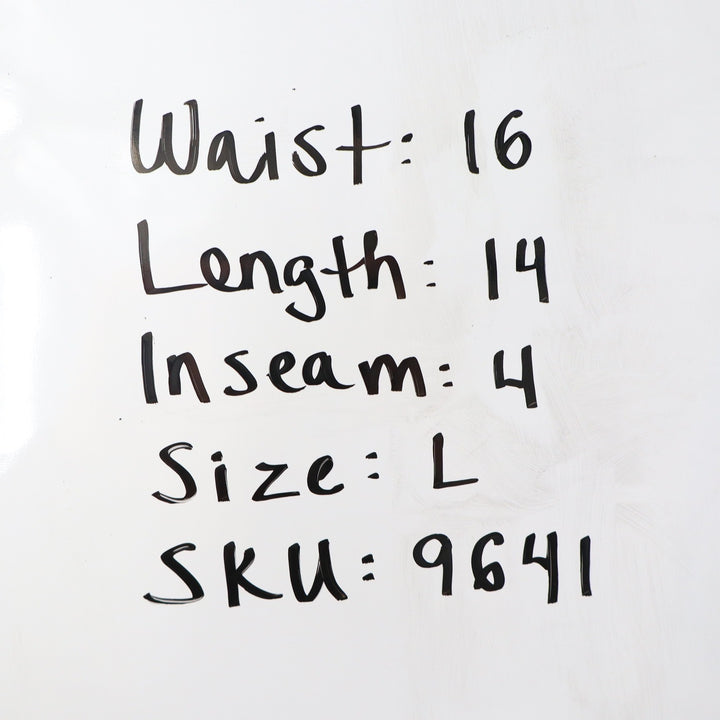 Waist: 16
Length: 14
Inseam: 4
Size: L
SKU: 9641